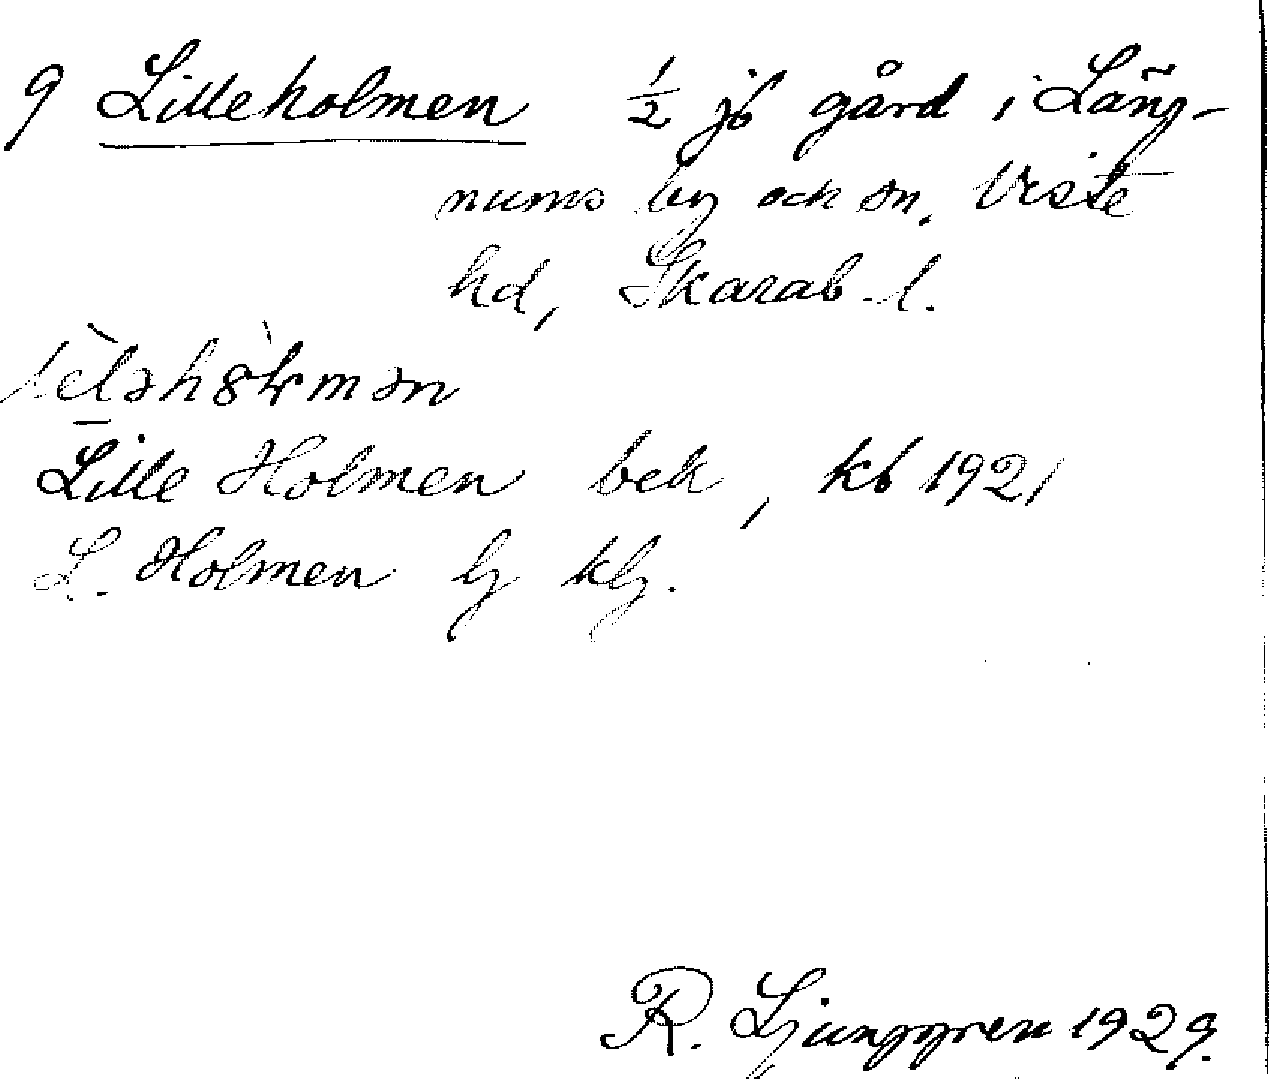 9 Lilleholmen ½ jb gård i Lång-
nums by och sn. Viste
hd, Skarab. l.
Lille Holmen bek, kb 1921
L. Holmen
R. Ljunggren 1929.